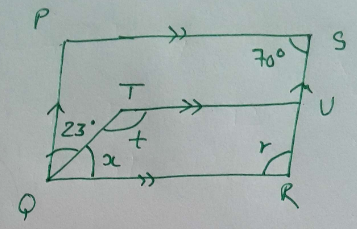 P
S
70°
T
U
23°
t
x
r
Q
R